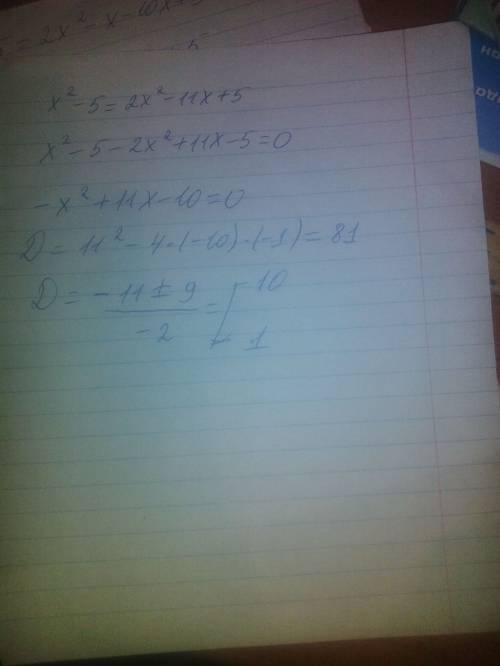 = 2x² - x - 10x +
x² - 5 = 2x² - 11x + 5
x² - 5 - 2x² + 11x - 5 = 0
-x² + 11x - 10 = 0
D = 11² - 4 · (-10) · (-1) = 81
D = (-11 ± 9) / -2 = [ 10
1